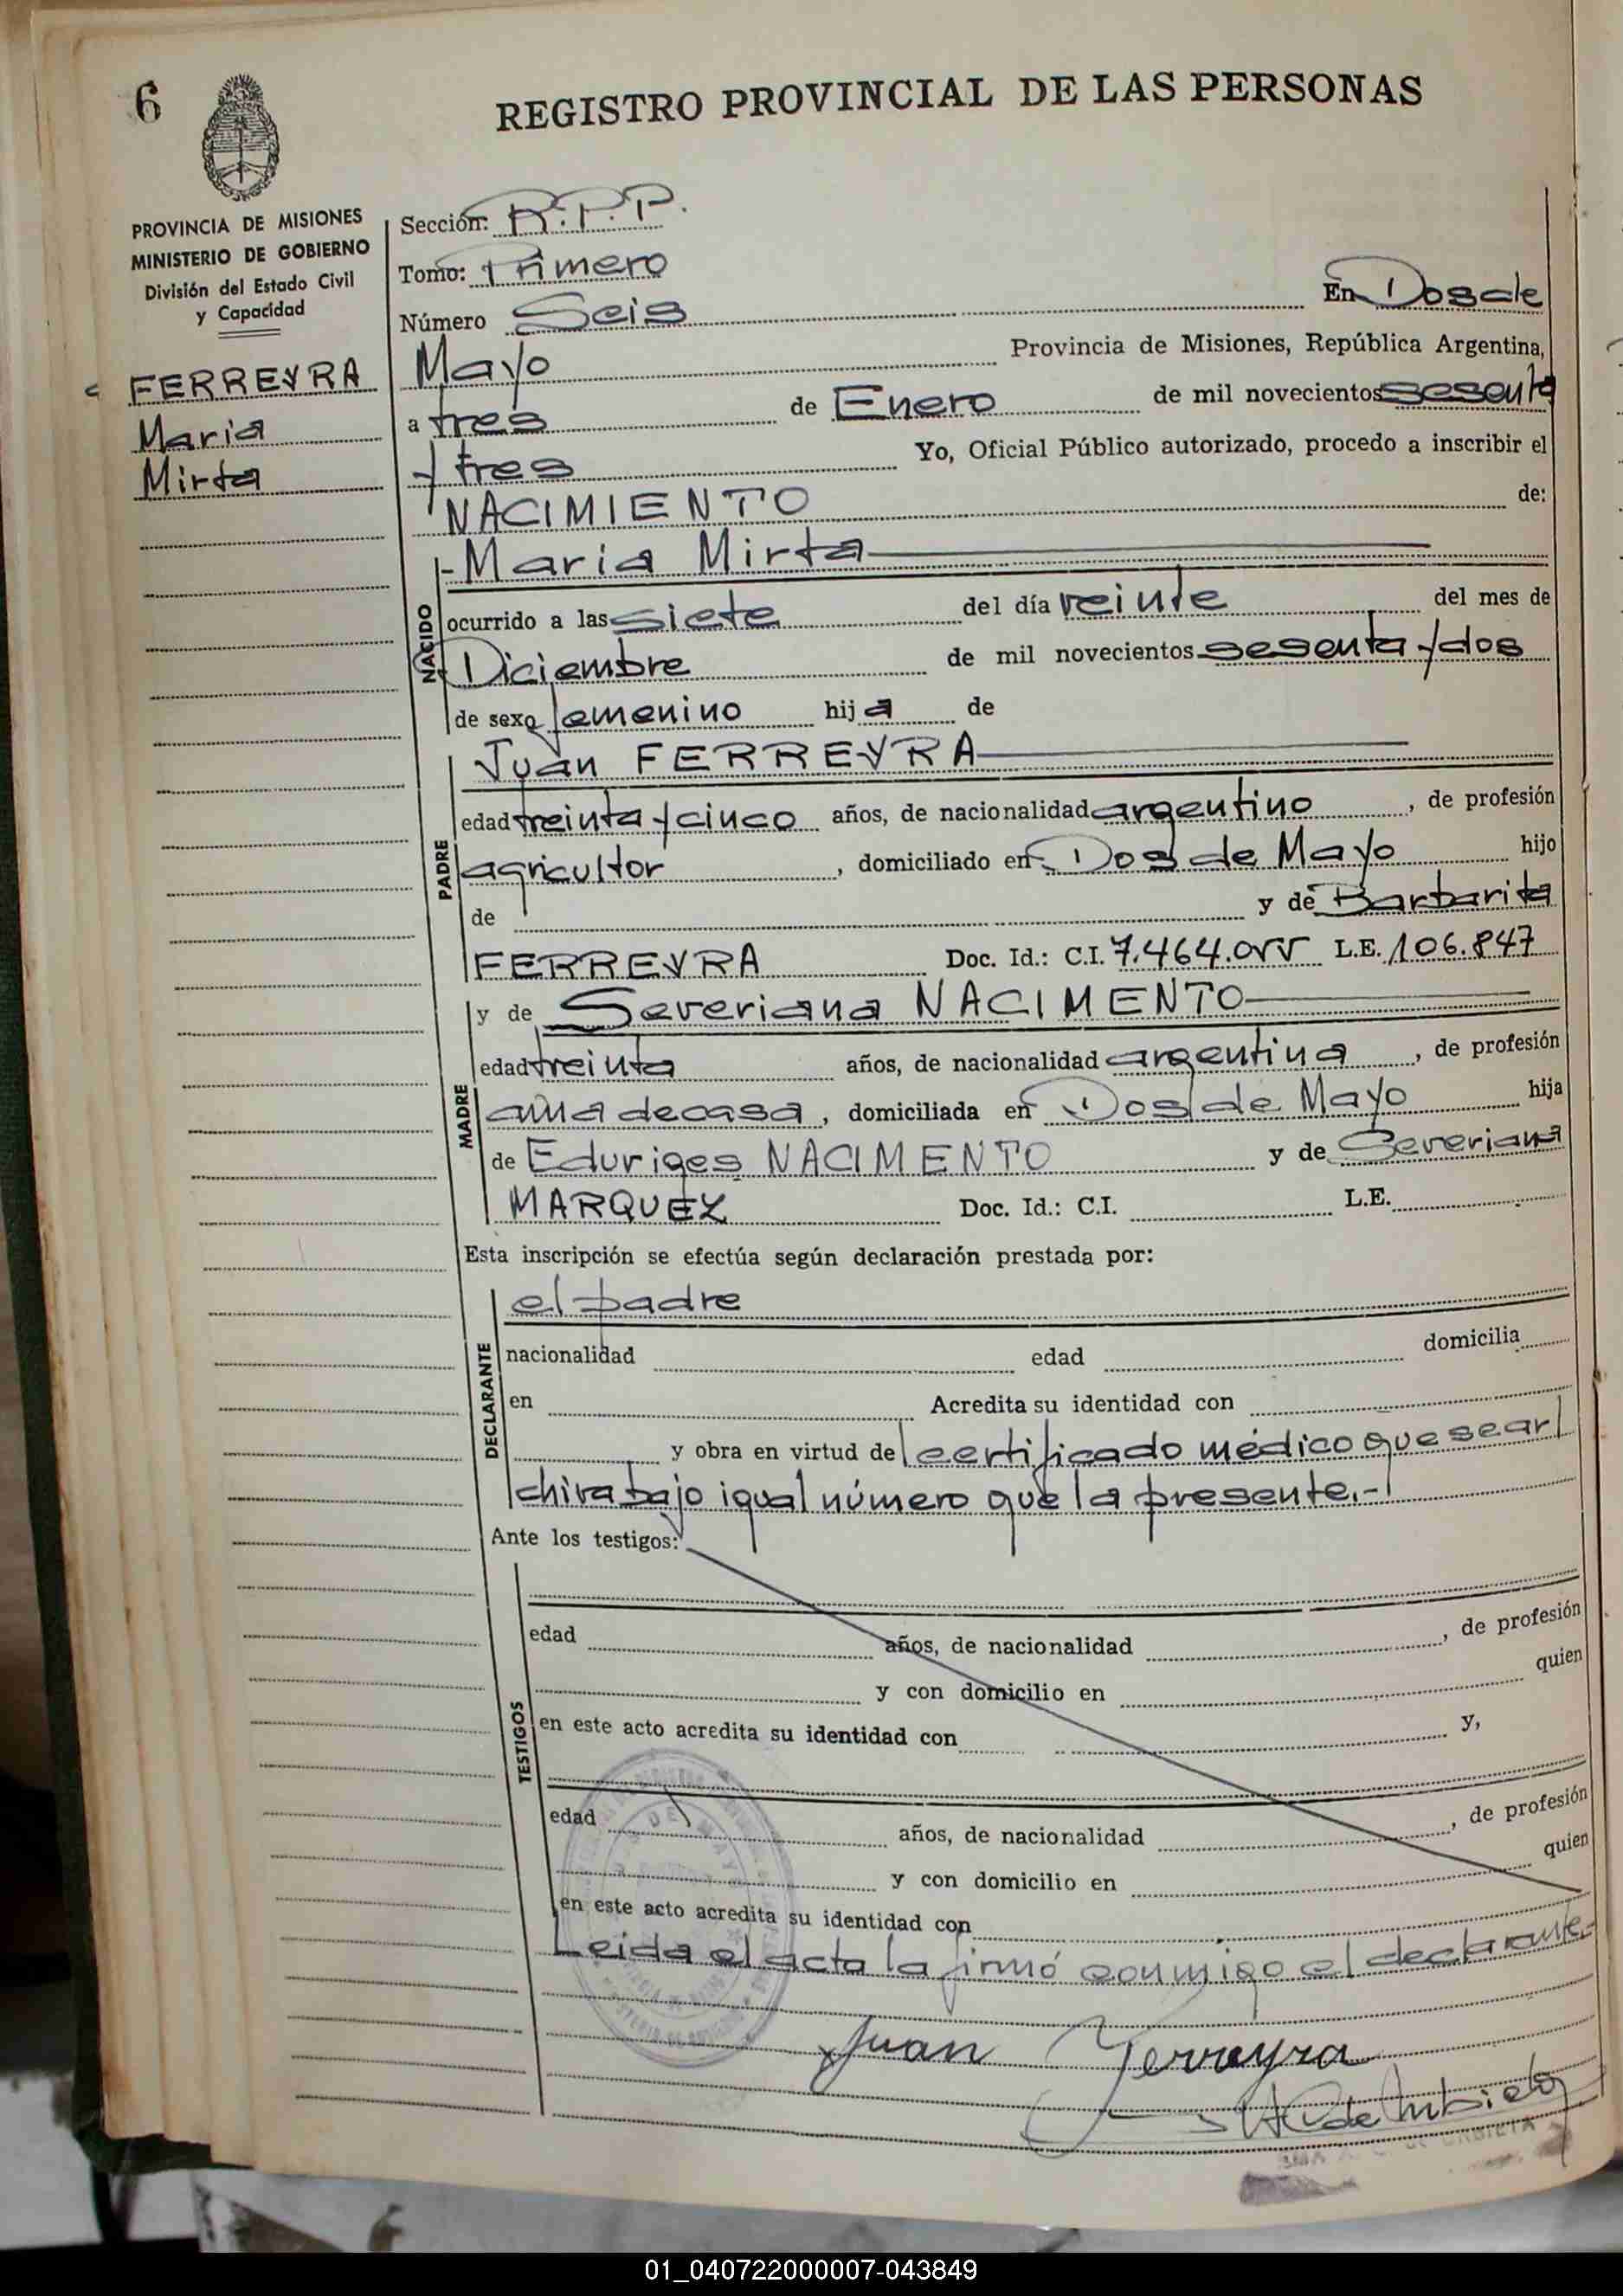 6
REGISTRO PROVINCIAL DE LAS PERSONAS
PROVINCIA DE MISIONES
MINISTERIO DE GOBIERNO
División del Estado Civil
y Capacidad
FERREYRA
Maria
Mirta
Sección: R.P.P.
Tomo: Primero
Número Seis En Dos de
Mayo Provincia de Misiones, República Argentina,
a tres de Enero de mil novecientos sesenta
y tres Yo, Oficial Público autorizado, procedo a inscribir el
NACIMIENTO de:
NACIDO
-Maria Mirta
ocurrido a las siete del día veinte del mes de
Diciembre de mil novecientos sesenta y dos
de sexo femenino hija de
PADRE
Juan FERREYRA
edad treinta y cinco años, de nacionalidad argentino, de profesión
agricultor, domiciliado en Dos de Mayo hijo
de y de Barbarita
FERREYRA Doc. Id.: C.I. 7.464.0VV L.E. 106.847
MADRE
y de Severiana NACIMENTO
edad treinta años, de nacionalidad argentina, de profesión
ama de casa, domiciliada en Dos de Mayo hija
de Eduriges NACIMENTO y de Severiana
MARQUEZ Doc. Id.: C.I. L.E.
Esta inscripción se efectúa según declaración prestada por:
DECLARANTE
el padre
nacionalidad edad domicilia
en Acredita su identidad con
y obra en virtud de certificado médico que se ar
chiva bajo igual número que la presente.-
Ante los testigos:
TESTIGOS
edad años, de nacionalidad , de profesión
y con domicilio en quien
en este acto acredita su identidad con y,
edad años, de nacionalidad , de profesión
y con domicilio en quien
en este acto acredita su identidad con
Leida el acta la firmó conmigo el declarante.-
Juan Ferreyra
01_040722000007-043849